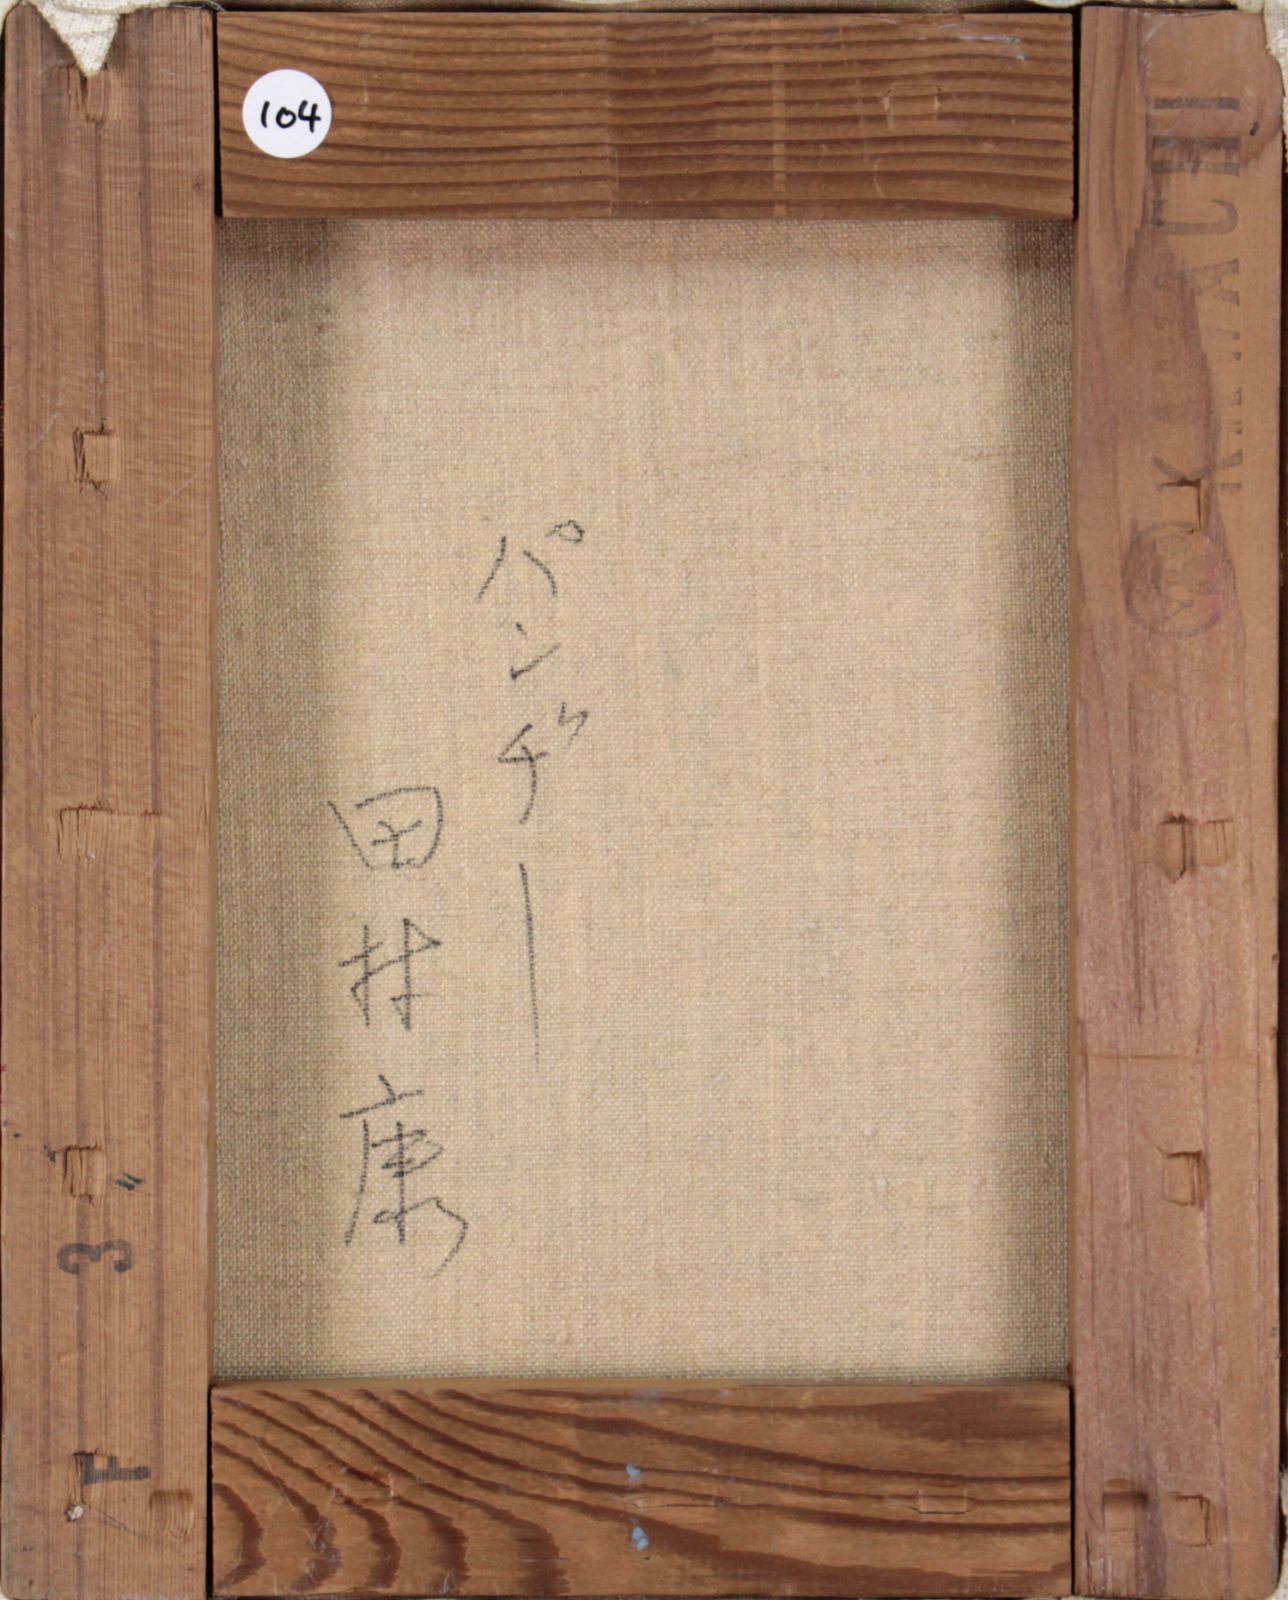 104
パンヂー
田村康
F 3
KAWACHI